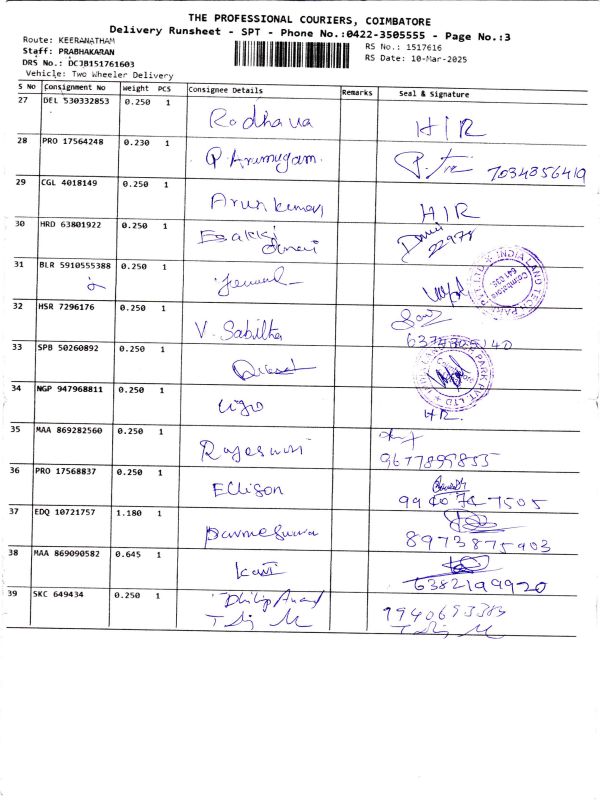 THE PROFESSIONAL COURIERS, COIMBATORE
Delivery Runsheet - SPT - Phone No.:0422-3505555 - Page No.:3
Route: KEERANATHAM
RS No.: 1517616
Staff: PRABHAKARAN
RS Date: 10-Mar-2025
DRS No.: DCJB151761603
Vehicle: Two Wheeler Delivery
S No Consignment No Weight PCS Consignee Details Remarks Seal & Signature
27 DEL 530332853 0.250 1 Radhava HIR
28 PRO 17564248 0.230 1 P. Arumugam. 7034856419
29 CGL 4018149 0.250 1 Arun kumar HIR
30 HRD 63801922 0.250 1 Esakki 22978
31 BLR 5910555388 0.250 1
INDIA LAND TECH PARK PVT LTD
Coimbatore 641 035
32 HSR 7296176 0.250 1 V. Sabitha
33 SPB 50260892 0.250 1
34 NGP 947968811 0.250 1 HR.
35 MAA 869282560 0.250 1 Rajeswari 9677899855
36 PRO 17568837 0.250 1 Ellison 9940747505
37 EDQ 10721757 1.180 1 Parmeswara 8973875403
38 MAA 869090582 0.645 1 Kavi 6382199920
39 SKC 649434 0.250 1 Philip Anand